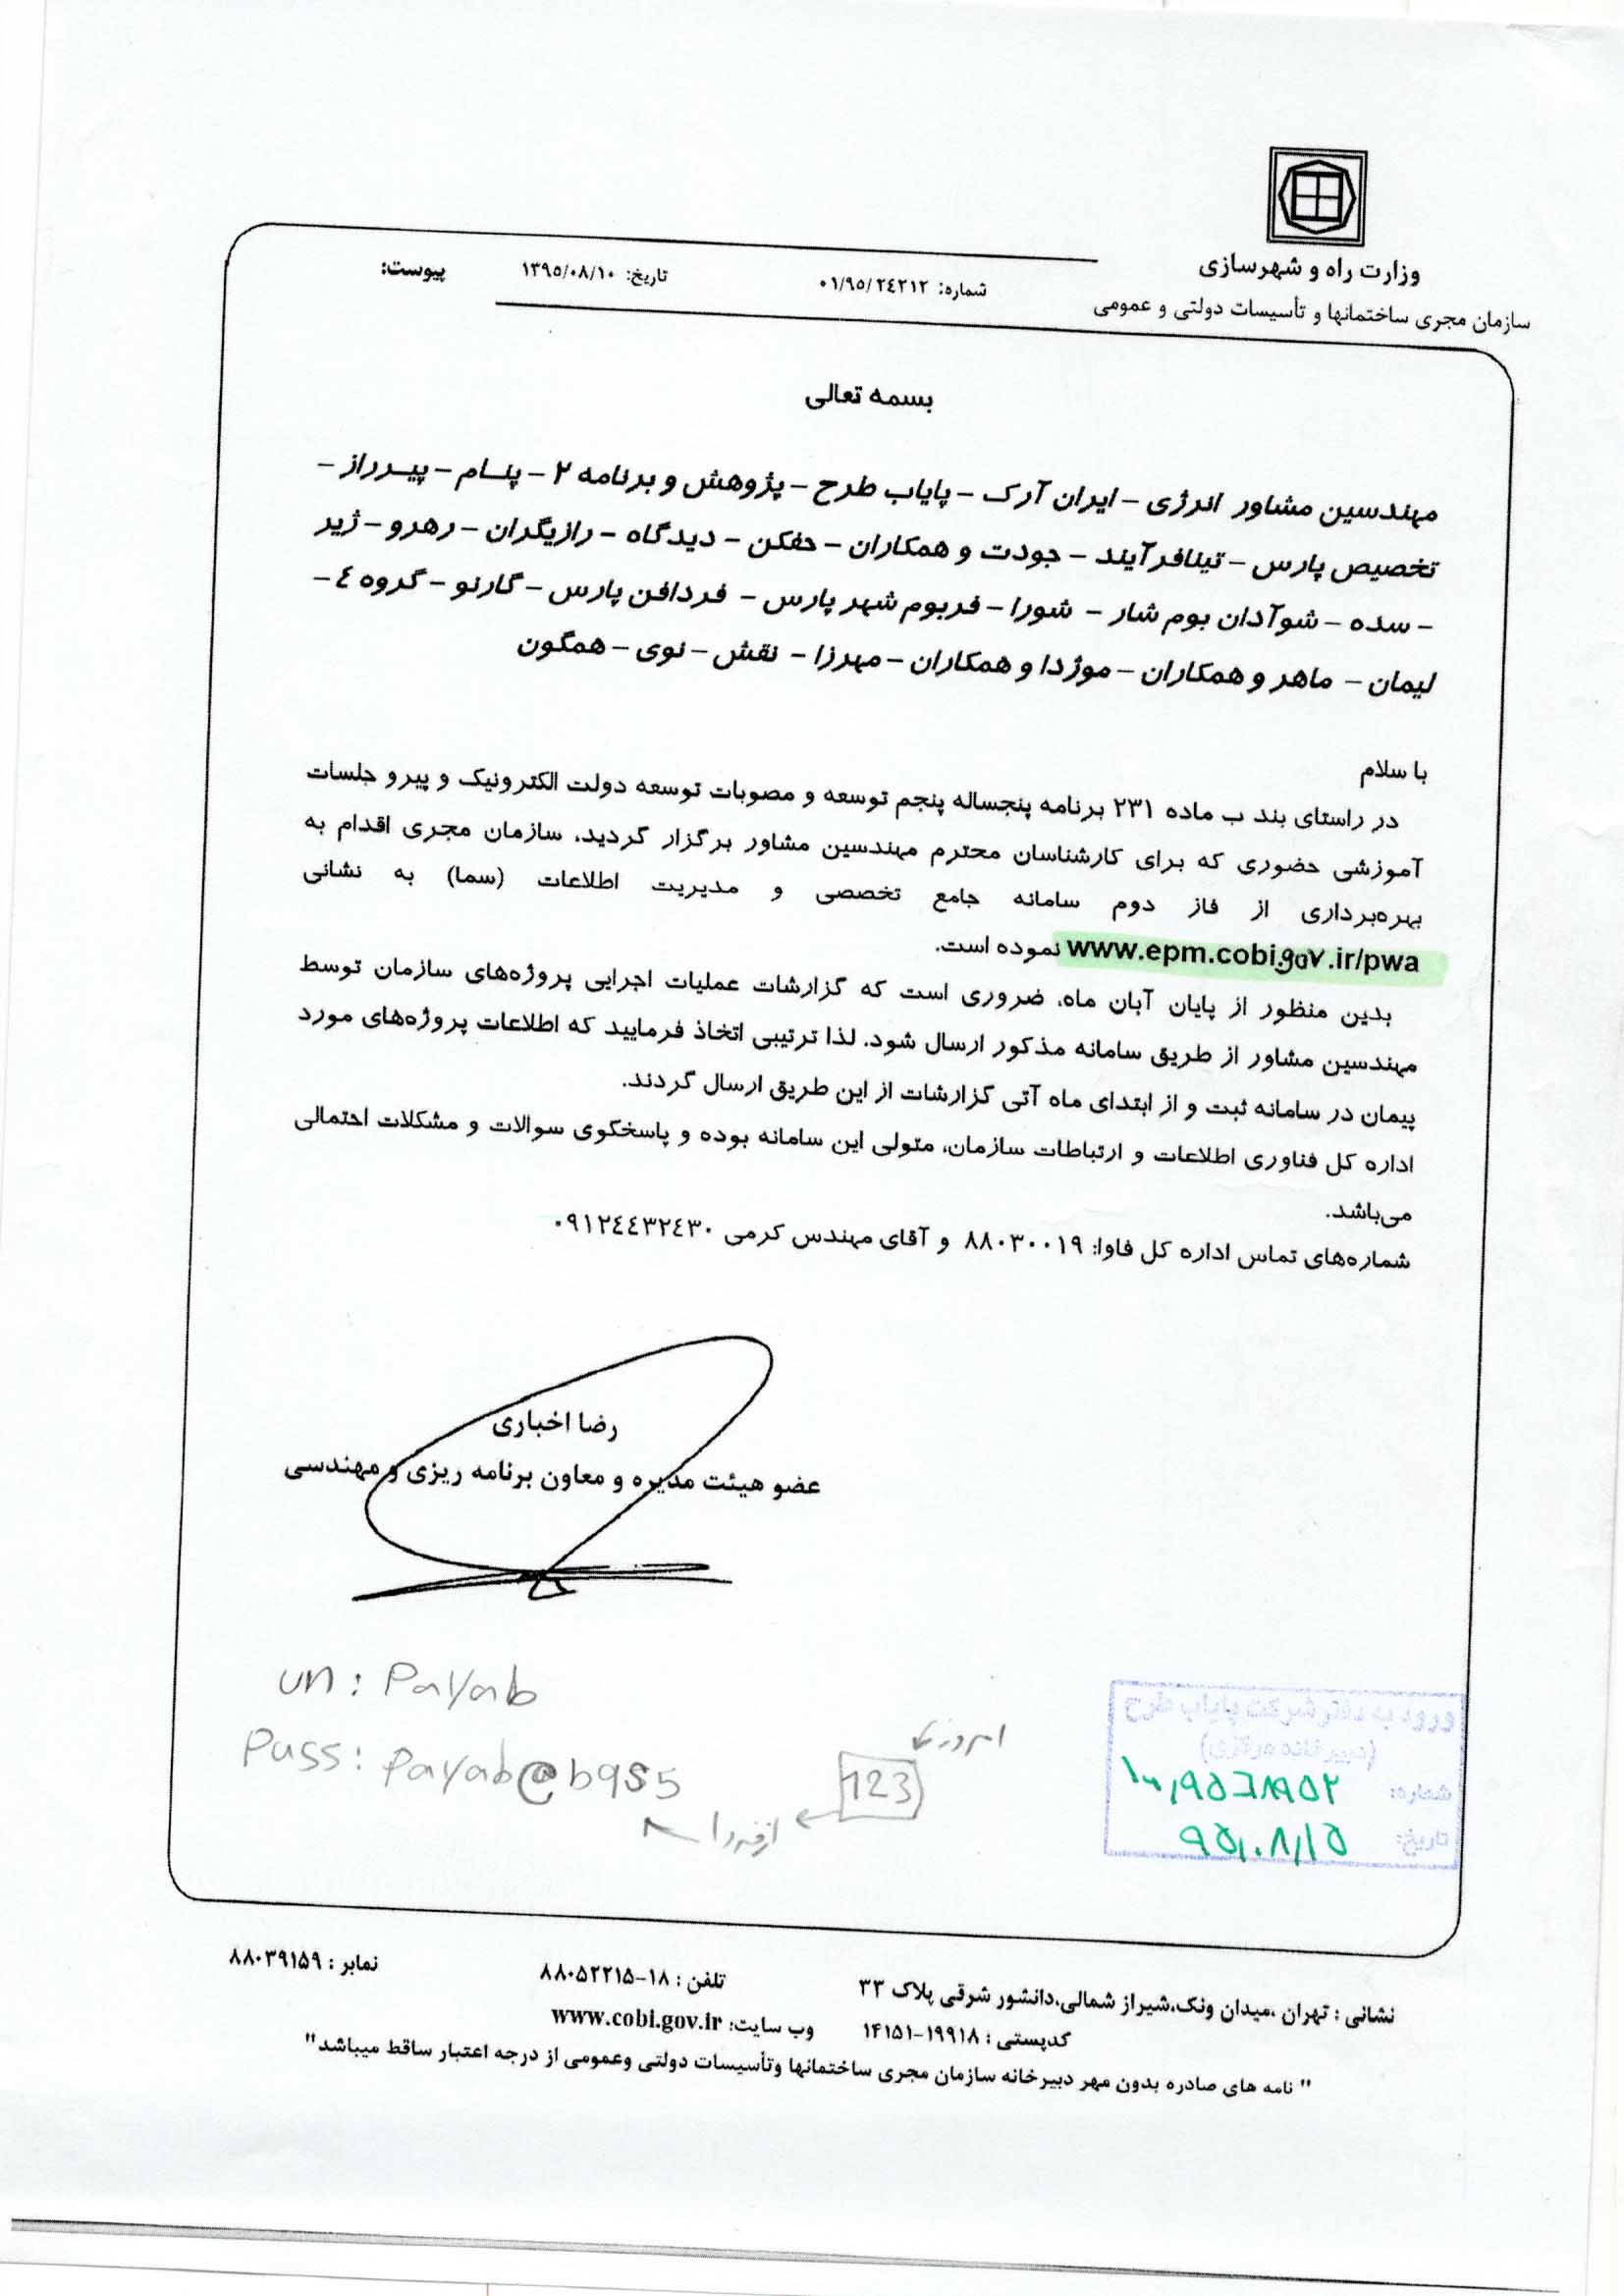 وزارت راه و شهرسازی
سازمان مجری ساختمانها و تأسیسات دولتی و عمومی
شماره: ۰۱/۹۵/۲٤۲۱۲
تاریخ: ۱۳۹۵/۰۸/۱۰
پیوست:
بسمه تعالی
مهندسین مشاور انرژی – ایران آرک – پایاب طرح – پژوهش و برنامه ۲ – پلسام – پیسرراز –
تخصیص پارس – تینافرآیند – جودت و همکاران – حفکن – دیدگاه – رازیگران – رهرو – ژیر
– سده – شوآدان بوم شار – شورا – فربوم شهر پارس – فردافن پارس – گارنو – گروه ٤ –
لیمان – ماهر و همکاران – موژدا و همکاران – مهرزا – نقش – نوی – همگون
با سلام
در راستای بند ب ماده ۲۳۱ برنامه پنجساله پنجم توسعه و مصوبات توسعه دولت الکترونیک و پیرو جلسات
آموزشی حضوری که برای کارشناسان محترم مهندسین مشاور برگزار گردید، سازمان مجری اقدام به
بهره‌برداری از فاز دوم سامانه جامع تخصصی و مدیریت اطلاعات (سما) به نشانی
www.epm.cobi.gov.ir/pwa نموده است.
بدین منظور از پایان آبان ماه، ضروری است که گزارشات عملیات اجرایی پروژه‌های سازمان توسط
مهندسین مشاور از طریق سامانه مذکور ارسال شود. لذا ترتیبی اتخاذ فرمایید که اطلاعات پروژه‌های مورد
پیمان در سامانه ثبت و از ابتدای ماه آتی گزارشات از این طریق ارسال گردند.
اداره کل فناوری اطلاعات و ارتباطات سازمان، متولی این سامانه بوده و پاسخگوی سوالات و مشکلات احتمالی
می‌باشد.
شماره‌های تماس اداره کل فاوا: ۸۸۰۳۰۰۱۹ و آقای مهندس کرمی ۰۹۱۲٤٤۳۲٤۳۰
رضا اخباری
عضو هیئت مدیره و معاون برنامه ریزی و مهندسی
un: Payab
Pass: Payab@b955
امروز
123
از فردا
ورود به دفتر شرکت پایاب طرح
(دبیرخانه مرکزی)
شماره:
تاریخ: ۹۵/۰۸/۱۵
نشانی : تهران ،میدان ونک،شیراز شمالی،دانشور شرقی پلاک ۳۳
تلفن : ۱۸-۸۸۰۵۲۲۱۵
نمابر : ۸۸۰۳۹۱۵۹
کدپستی : ۱۹۹۱۸-۱۴۱۵۱
وب سایت: www.cobi.gov.ir
" نامه های صادره بدون مهر دبیرخانه سازمان مجری ساختمانها وتأسیسات دولتی وعمومی از درجه اعتبار ساقط میباشد"